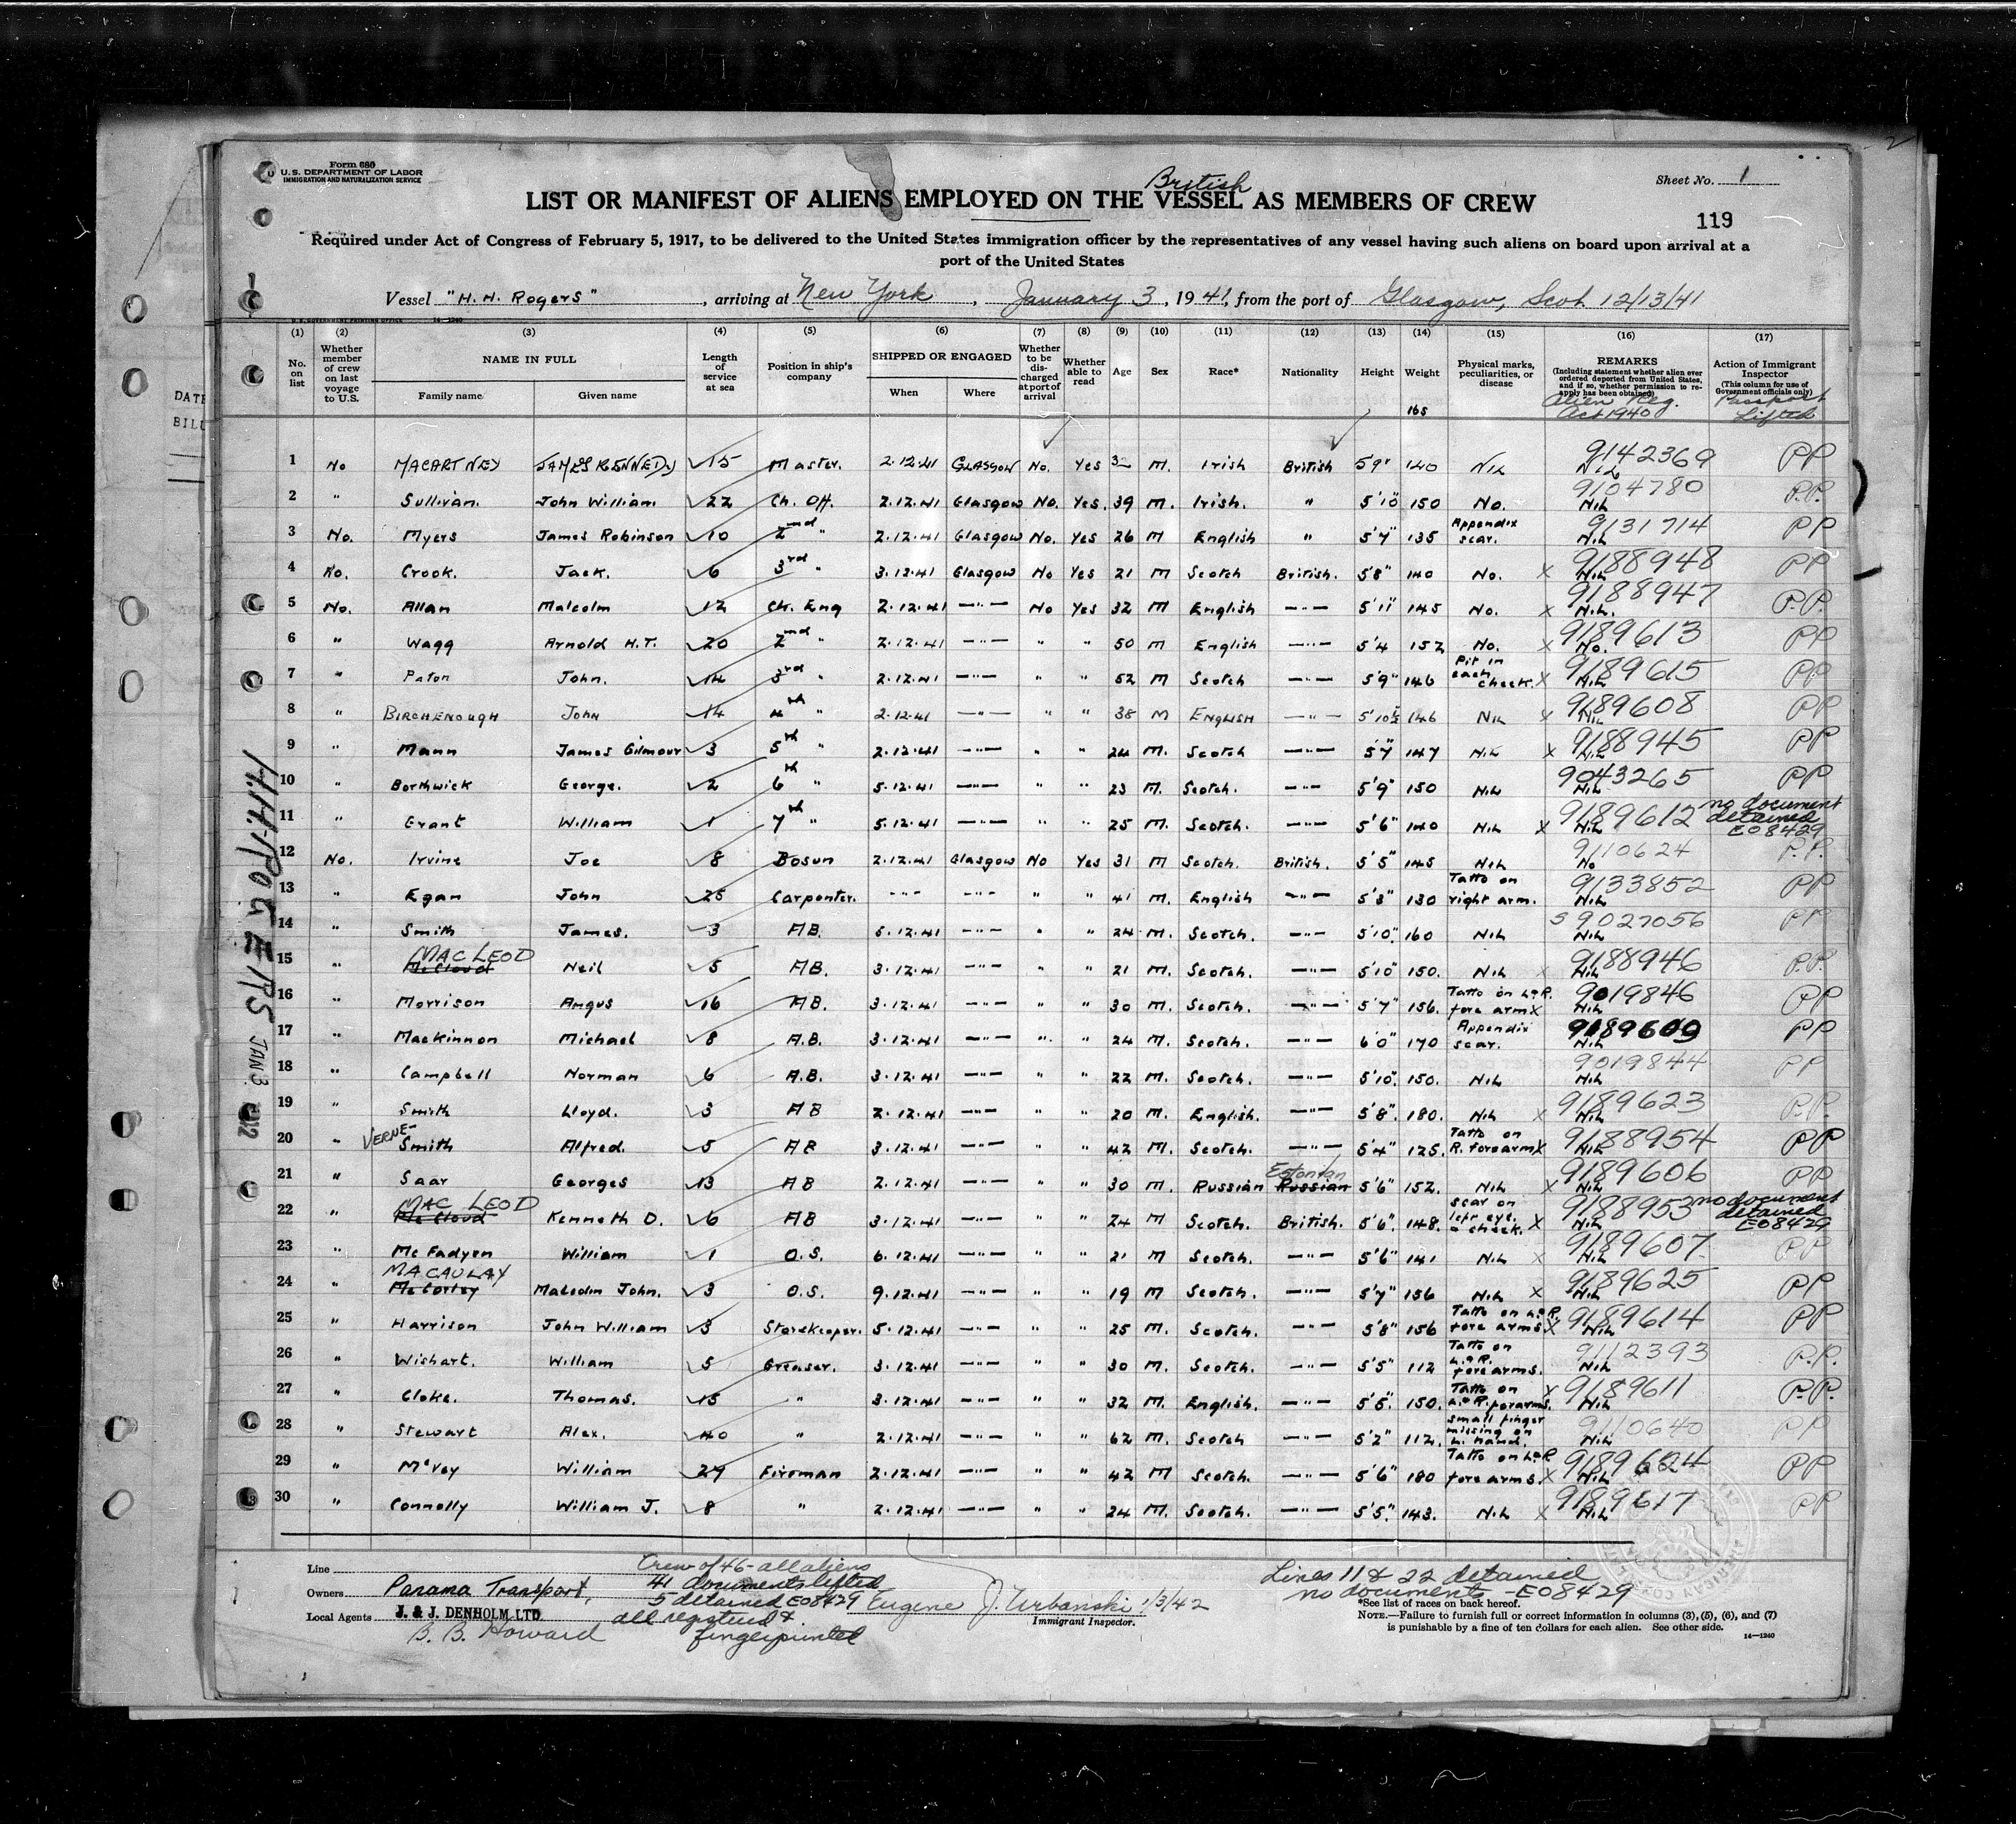 Form 680
U.S. DEPARTMENT OF LABOR
IMMIGRATION AND NATURALIZATION SERVICE
Sheet No. 1
British
LIST OR MANIFEST OF ALIENS EMPLOYED ON THE VESSEL AS MEMBERS OF CREW
119
Required under Act of Congress of February 5, 1917, to be delivered to the United States immigration officer by the representatives of any vessel having such aliens on board upon arrival at a
port of the United States
Vessel "H. H. Rogers", arriving at New York, January 3, 1941, from the port of Glasgow, Scot. 12/13/41
(1) (2) (3) (4) (5) (6) (7) (8) (9) (10) (11) (12) (13) (14) (15) (16) (17)
No. on list
Whether member of crew on last voyage to U.S.
NAME IN FULL
Family name
Given name
Length of service at sea
Position in ship's company
SHIPPED OR ENGAGED
When
Where
Whether to be discharged at port of arrival
Whether able to read
Age
Sex
Race*
Nationality
Height
Weight
165
Physical marks, peculiarities, or disease
REMARKS
(Including statement whether alien ever ordered deported from United States, and if so, whether permission to reapply has been obtained)
Alien Reg. Act 1940
Action of Immigrant Inspector
(This column for use of Government officials only)
Passport Lifted
1 No MACARTNEY JAMES KENNEDY 15 Master. 2.12.41 GLASGOW No. Yes M. Irish British 5 9" 140 NIL 9142369 NIL PP
2 " Sullivan. John William. 22 Ch. Off. 2.12.41 Glasgow No. Yes. 39 M. Irish. " 5'10" 150 No. 9104780 NIL P.P.
3 No. Myers James Robinson 10 2nd " 2.12.41 Glasgow No. Yes 26 M English " 5'7" 135 Appendix scar. 9131714 NIL PP
4 No. Crook. Jack. 6 3rd " 3.12.41 Glasgow No Yes 21 M Scotch British. 5'8" 140 No. X 9188948 NIL PP
5 No. Allan Malcolm 12 Ch. Eng 2.12.41 —"— No Yes 32 M English —"— 5'11" 145 No. X 9188947 NIL. P.P.
6 " Wagg Arnold H.T. 20 2nd " 2.12.41 —"— " " 50 M English —"— 5'4 152 No. X 9189613 No. PP
7 " Paton John. 14 3rd " 2.12.41 —"— " " 52 M Scotch —"— 5'9" 146 Pit in each cheek. X 9189615 NIL PP
8 " BIRCHENOUGH JOHN 14 4th " 2.12.41 —"— " " 38 M ENGLISH —"— 5'10½ 146 NIL X 9189608 NIL PP
9 " Mann James Gilmour 3 5th " 2.12.41 —"— " " 24 M. Scotch —"— 5'7" 147 NIL X 9188945 NIL PP
10 " Borthwick George. 2 6th " 5.12.41 —"— " " 23 M. Scotch. —"— 5'9" 150 NIL 9043265 NIL PP
11 " Grant William 1 7th " 5.12.41 —"— " " 25 M. Scotch. —"— 5'6" 140 NIL X 9189612 NIL no document detained E08429
12 No. Irvine Joe 8 Bosun 2.12.41 Glasgow No Yes 31 M Scotch. British. 5'5" 145 NIL 9110624 No P.P.
13 " Egan John 25 Carpenter. -"- -"- " " 41 M. English —"— 5'3" 130 Tatto on right arm. 9133852 NIL PP
14 " Smith James. 3 AB. 6.12.41 —"— " " 24 M. Scotch. —"— 5'10" 160 NIL S 9027056 NIL PP
15 " MAC LEOD McCloud Neil 5 AB. 3.12.41 —"— " " 21 M. Scotch. —"— 5'10" 150. NIL 9188946 NIL P.P.
16 " Morrison Angus 16 AB. 3.12.41 —"— " " 30 M. Scotch. —"— 5'7" 156. Tatto on L & R. fore arm X 9019846 NIL PP
17 " Mackinnon Michael 8 A.B. 3.12.41 —"— " " 24 M. Scotch. —"— 6'0" 170 Appendix scar. 9189609 NIL PP
18 " Campbell Norman 6 A.B. 3.12.41 —"— " " 22 M. Scotch. —"— 5'10". 150. NIL 9019844 NIL PP
19 " Smith Lloyd. 3 AB 2.12.41 —"— " " 20 M. English. —"— 5'8". 180. NIL X 9189623 NIL P.P.
20 " VERNE- Smith Alfred. 5 AB 3.12.41 —"— " " 42 M. Scotch. —"— 5'4" 125. Tatto on R. forearm X 9188954 NIL PP
21 " Saar Georges 13 AB 2.12.41 —"— " " 30 M. Russian Estonian Russian 5'6" 152. NIL X 9189606 NIL PP
22 " MAC LEOD McCloud Kenneth D. 6 AB 3.12.41 —"— " " 24 M Scotch. British. 5'6". 148. scar on left eye. & cheek. X 9188953 NIL no document detained E08429
23 " McFadyen William 1 O.S. 6.12.41 —"— " " 21 M Scotch. —"— 5'6" 141 NIL X 9189607 NIL PP
24 " MACAULAY McCorley Malcolm John. 3 O.S. 9.12.41 —"— " " 19 M Scotch. —"— 5'7" 156 NIL X 9189625 NIL PP
25 " Harrison John William 3 Storekeeper. 5.12.41 —"— " " 25 M. Scotch. —"— 5'8" 156 Tatto on L & R. fore arms X 9189614 NIL PP
26 " Wishart. William 5 Greaser. 3.12.41 —"— " " 30 M. Scotch. —"— 5'5" 112 Tatto on L & R. forearms. 9112393 NIL P.P.
27 " Cloke. Thomas. 15 " 3.12.41 —"— " " 32 M. English. —"— 5'5". 150. Tatto on L & R. forarms. X 9189611 NIL P.P.
28 " Stewart Alex. 40 " 2.12.41 —"— " " 62 M. Scotch —"— 5'2" 112. small finger missing on L. hand. 9110640 NIL PP
29 " McVey William 29 Fireman 2.12.41 —"— " " 42 M Scotch. —"— 5'6" 180 Tatto on L & R fore arms. X 9189624 NIL PP
30 " Connolly William J. 8 " 2.12.41 —"— " " 24 M. Scotch. —"— 5'5". 143. NIL X 9189617 NIL PP
H.H. ROGERS JAN 3
DATE
BILL
Line
Owners Panama Transport,
Local Agents J. & J. DENHOLM LTD
B. B. Howard
Crew of 46 - all aliens
41 documents lifted
5 detained E08429
all registered &
fingerprinted
Eugene J. Urbanski 1/3/42
Immigrant Inspector.
Lines 11 & 22 detained
no documents - E08429
*See list of races on back hereof.
NOTE.—Failure to furnish full or correct information in columns (3), (5), (6), and (7)
is punishable by a fine of ten dollars for each alien. See other side.
14—1240